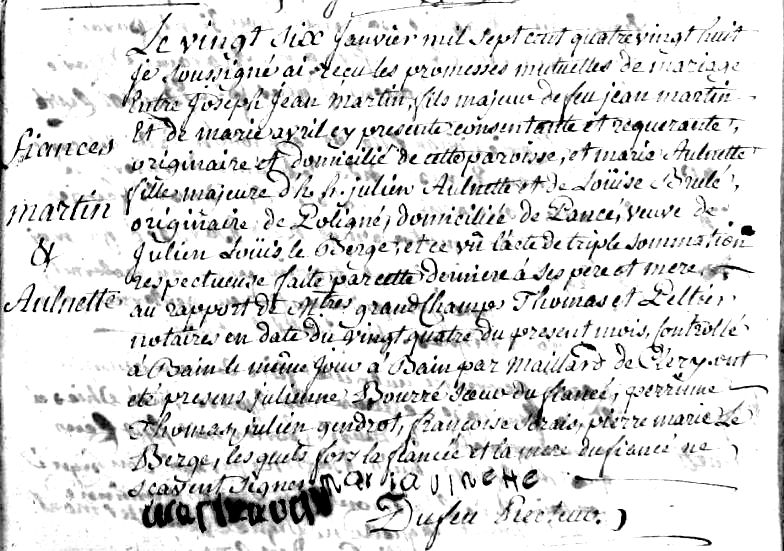 Le vingt six Janvier mil sept cent quatre vingt huit
je soussigné ai reçu les promesses mutuelles de mariage
Entre Joseph Jean Martin, fils majeur de feu jean martin
Et de marie avril cy presente consentante et requerante,
fiances
originaire et domicilié de cette paroisse, et marie Aulnette
fille majeure d'h. h. julien Aulnette et de Loüise Brulé,
martin
originaire de Poligné, domiciliée de Pancé, veuve de
&
Julien Loüis le Berge, et ce vû l'acte de triple sommation
respectueuse faite par cette derniere à ses pere et mere
Aulnette
au rapport de Mtres grandChamp Thomas et Peltier
notaires en date du vingt quatre du present mois, Controllé
à Bain le même jour à Bain par Maillard de Clery ont
eté presens julienne Bourré sœur du fiancé, perrinne
Thomas, julien gendrot, françoise, pierre marie Le
Berge, lesquels fors la fiancée et la mere du fiancé ne
scavent signer
mariaulnette
Dufeu Recteur